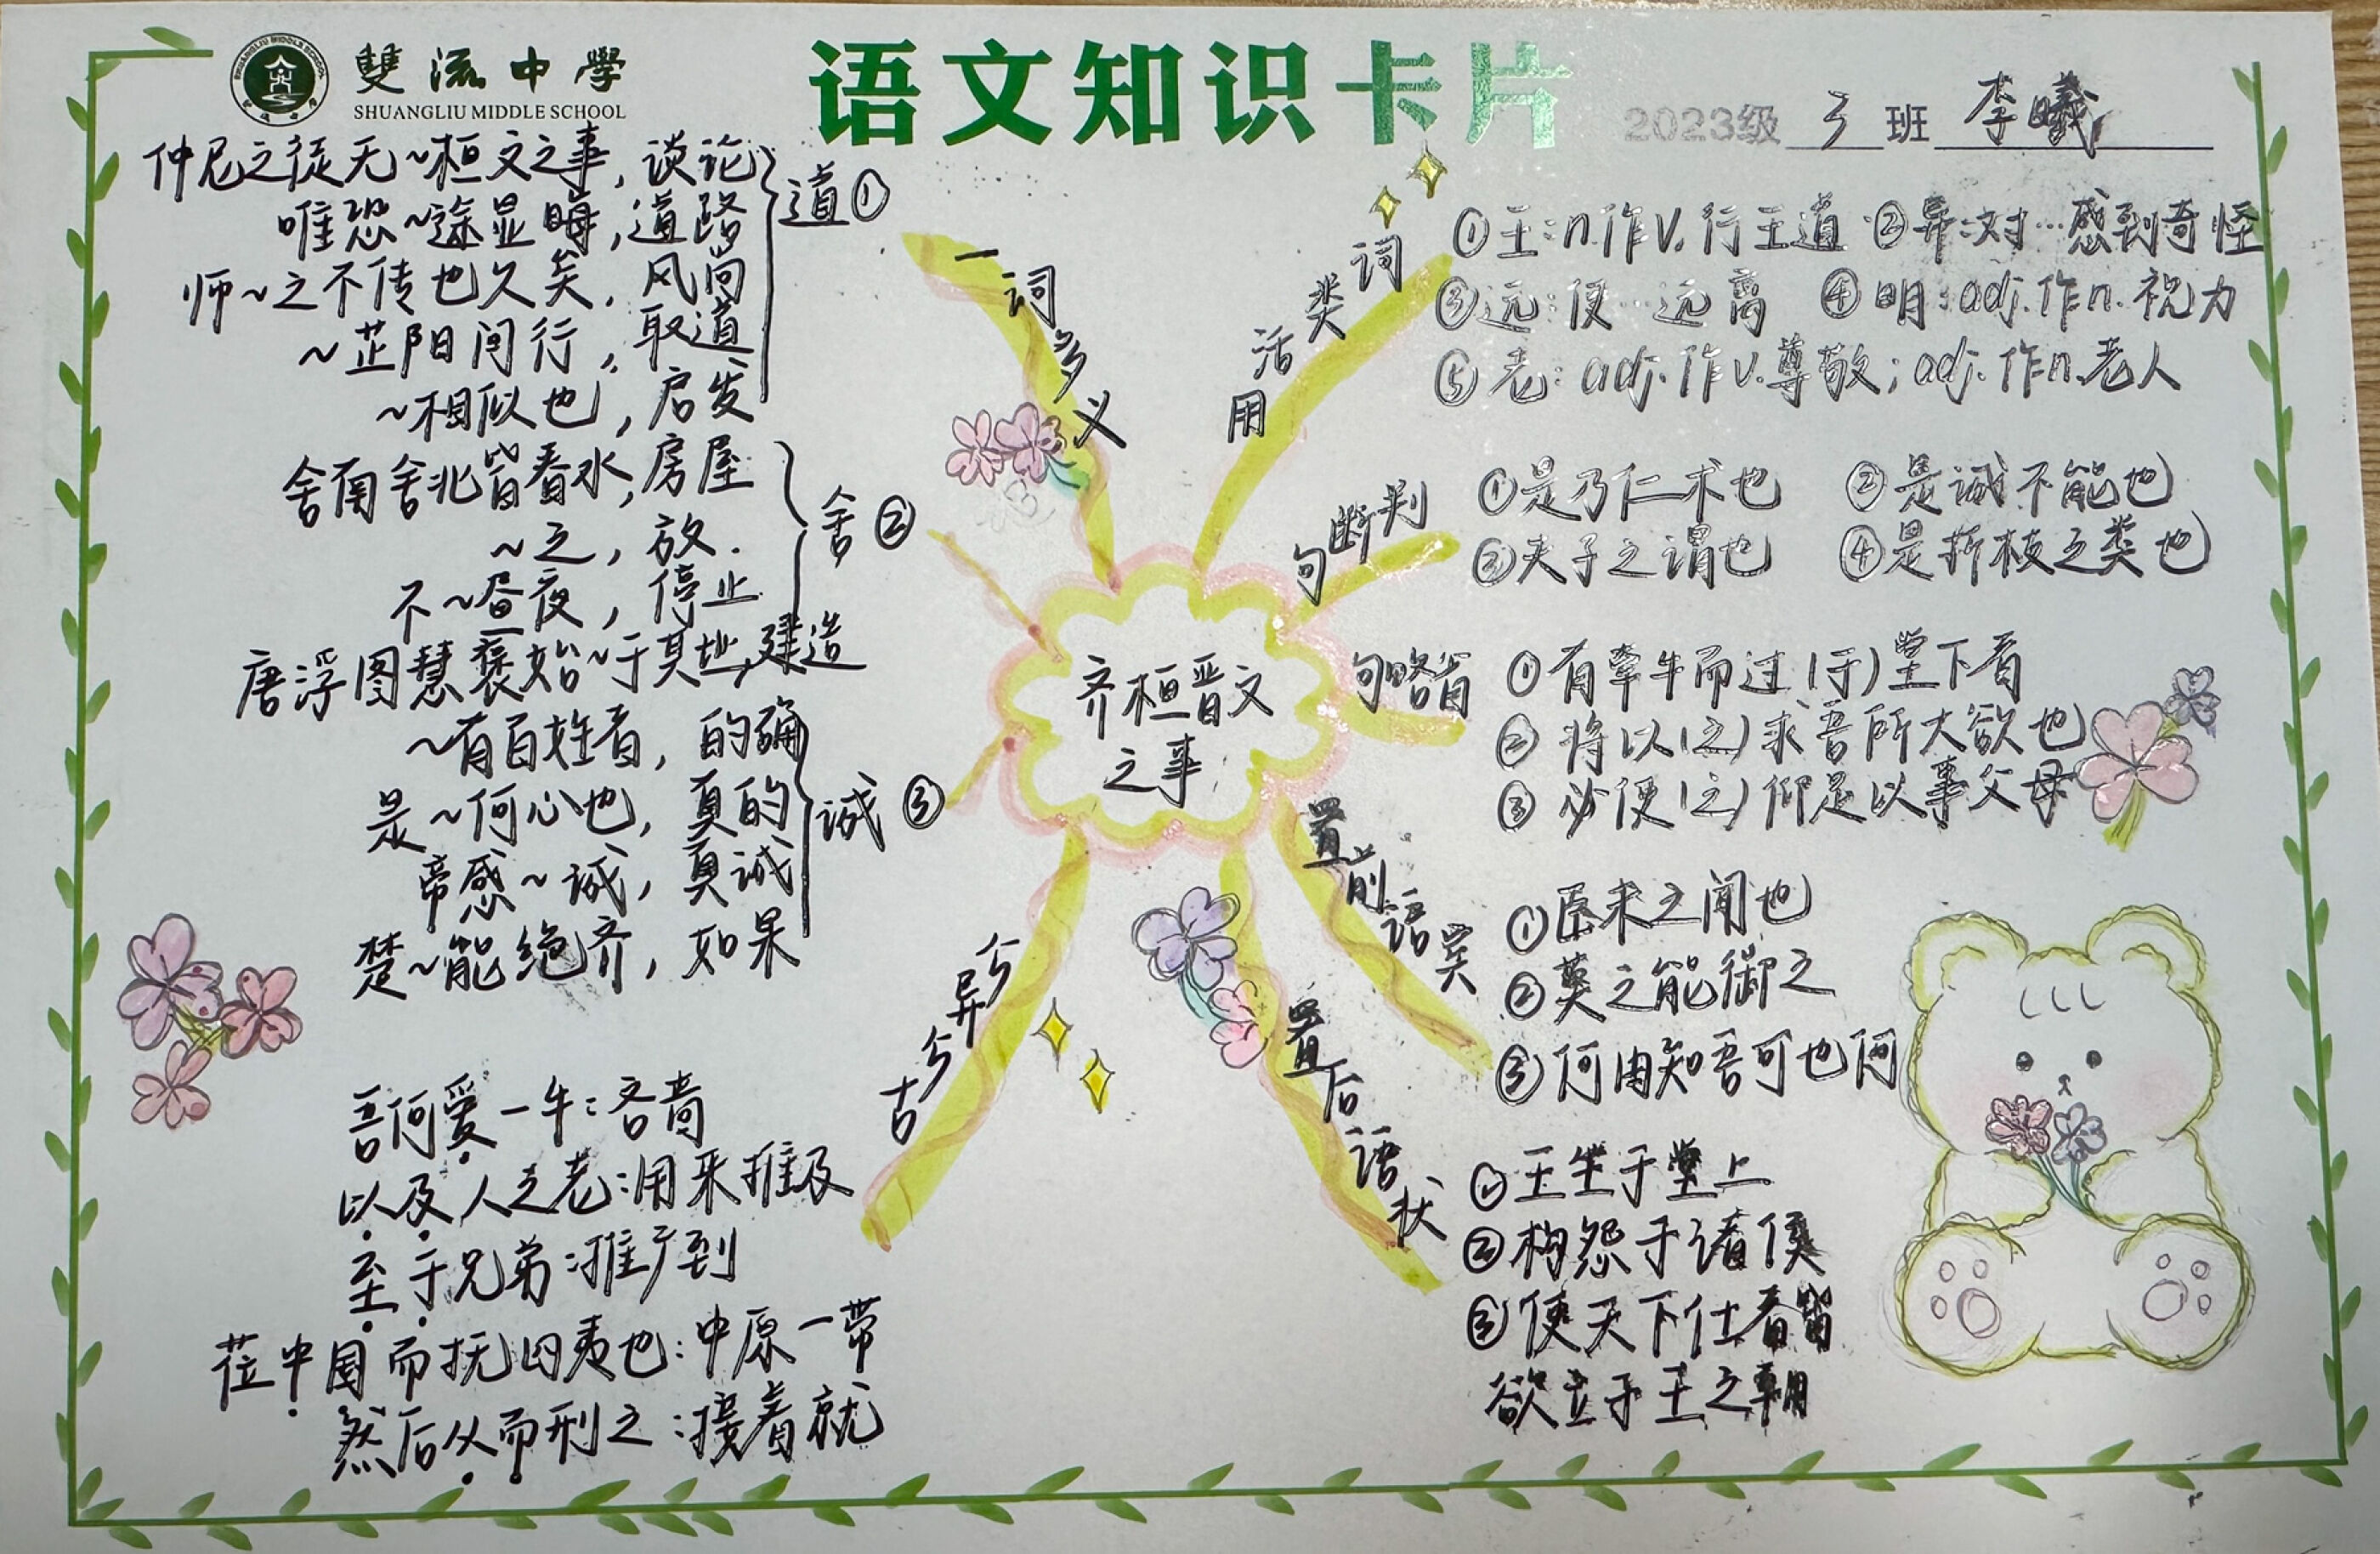 雙流中學
SHUANGLIU MIDDLE SCHOOL
语文知识卡片
2023级 3 班 李曦
仲尼之徒无~桓文之事,谈论
唯恐~途显晦,道路
师~之不传也久矣,风尚
~芷阳间行,取道
~相似也,启发
道①
舍南舍北皆春水,房屋
~之,放.
不~昼夜,停止
唐浮图慧褒始~于其址,建造
舍②
~有百姓者,的确
是~何心也,真的
帝感~诚,真诚
楚~能绝齐,如果
诚③
一词多义
古今异义
吾何爱一牛:吝啬
以及人之老:用来推及
至于兄弟:推广到
莅中国而抚四夷也:中原一带
然后从而刑之:接着就
齐桓晋文
之事
词类活用
①王:n.作v.行王道 ②异:对…感到奇怪
③远:使…远离 ④明:adj.作n.视力
⑤老:adj.作v.尊敬;adj.作n.老人
判断句
①是乃仁术也 ②是诚不能也
③夫子之谓也 ④是折枝之类也
省略句
①有牵牛而过(于)堂下者
②将以(之)求吾所大欲也
③必使(之)仰足以事父母
宾语前置
①臣未之闻也
②莫之能御之
③何由知吾可也何
状语后置
①王坐于堂上
②构怨于诸侯
③使天下仕者皆
欲立于王之朝